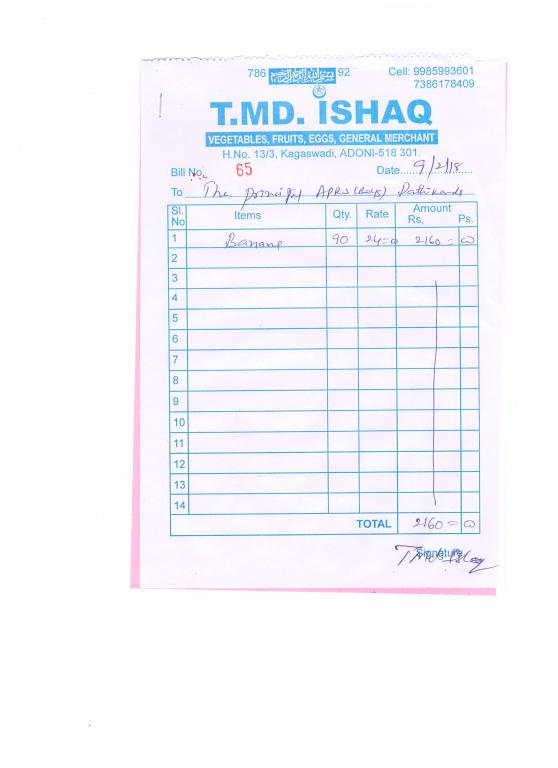 786 92 Cell: 9985993601
7386178409
T.MD. ISHAQ
VEGETABLES, FRUITS, EGGS, GENERAL MERCHANT
H.No. 13/3, Kagaswadi, ADONI-518 301.
Bill No. 65 Date 9/2/18
To The principal APRS (Boys)
Sl. No Items Qty. Rate Amount Rs, Ps.
1 Banana 90 24=00 2160 = 00
2
3
4
5
6
7
8
9
10
11
12
13
14
TOTAL 2160 = 00
Signature